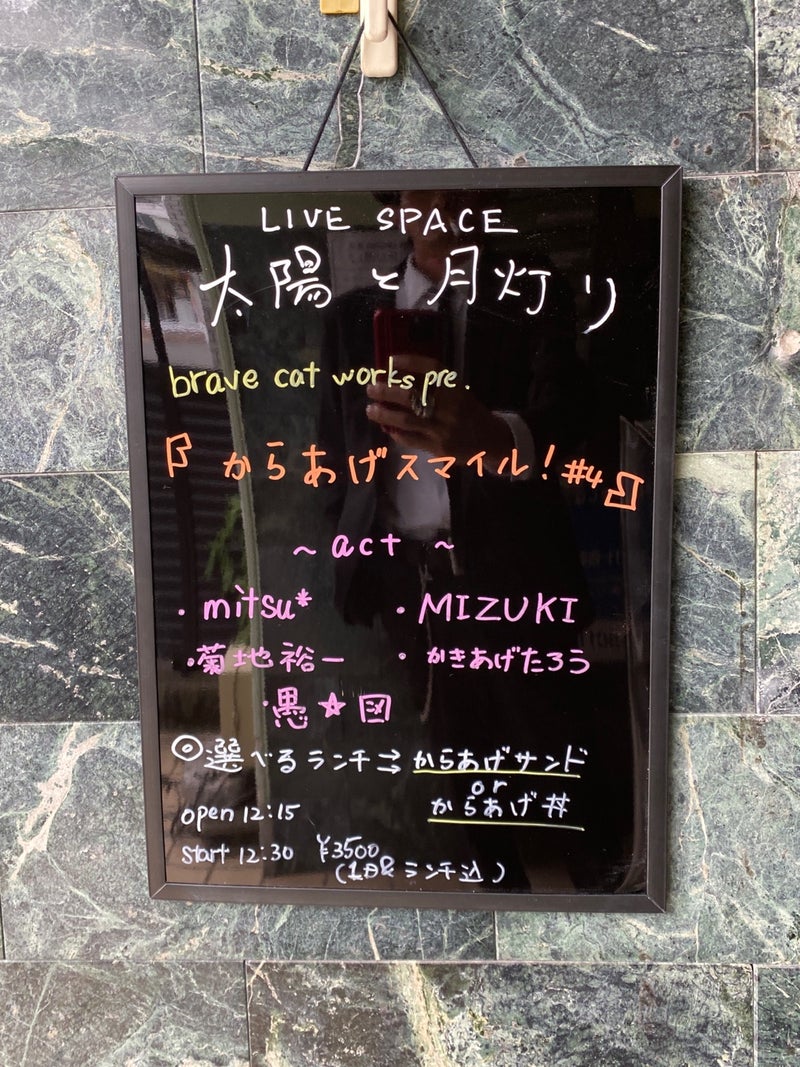 LIVE SPACE
太陽と月灯り
brave cat works pre.
『からあげスマイル!#4』
~ act ~
・mitsu* ・MIZUKI
・菊地裕一 ・かきあげたろう
・愚★図
◎選べるランチ⇒からあげサンド
or
からあげ丼
open 12:15
start 12:30 ¥3500
(1D&ランチ込)